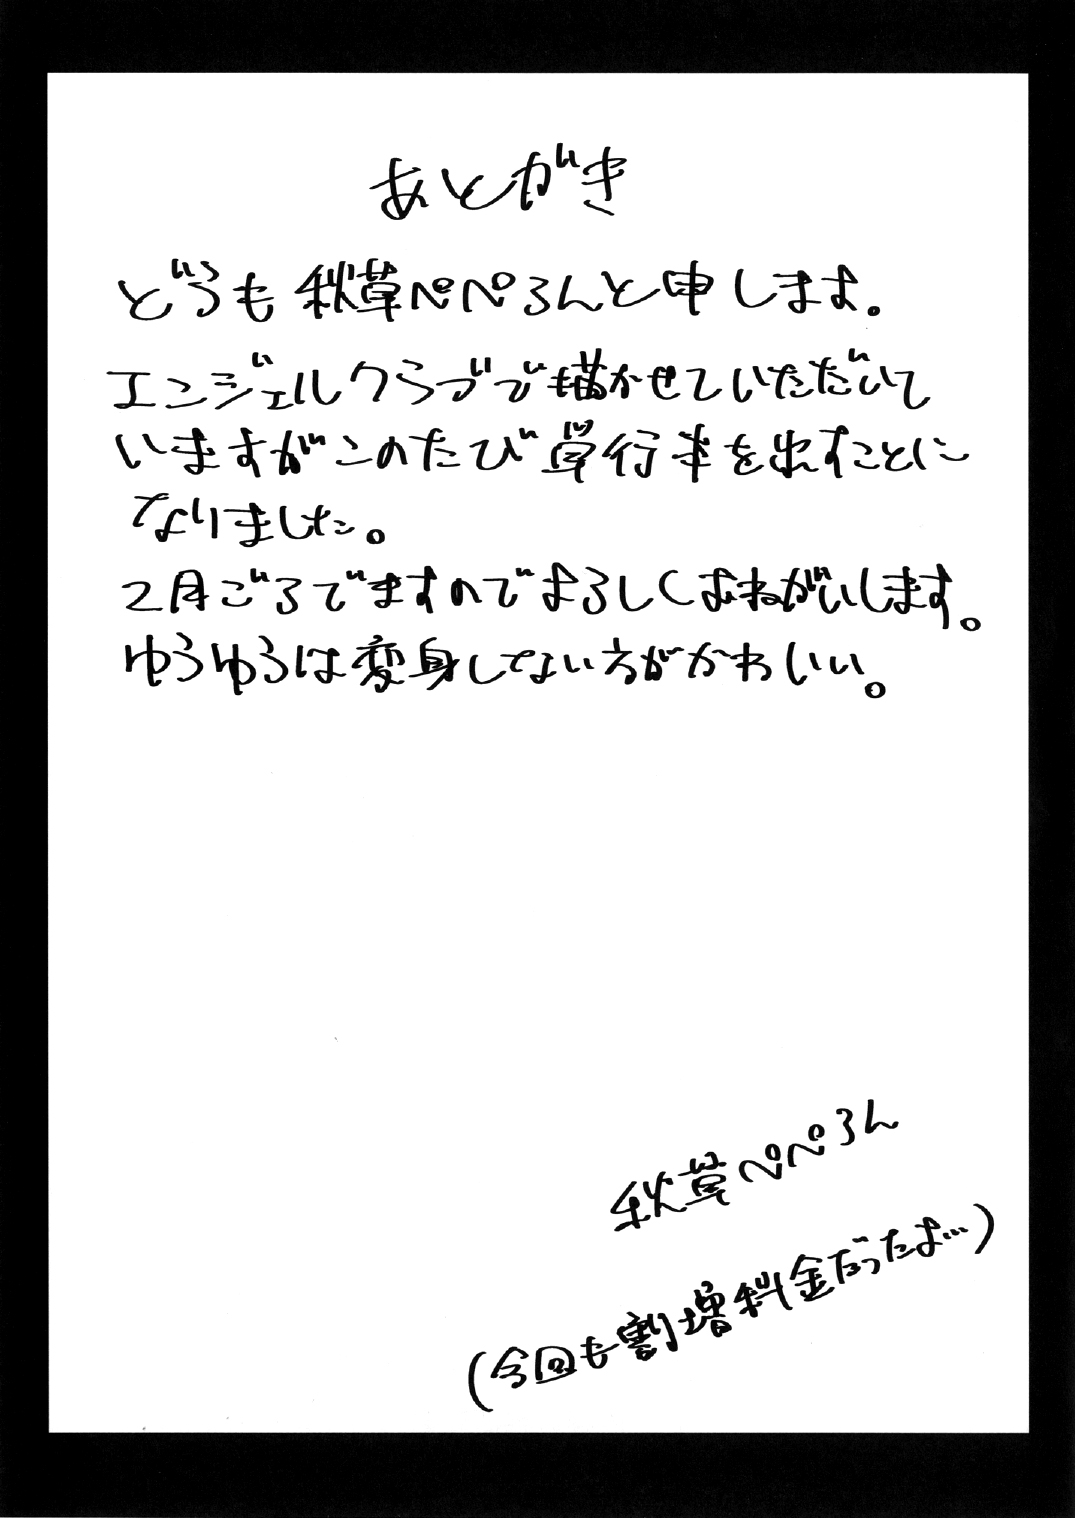 あとがき
どうも秋草ぺぺろんと申します。
エンジェルクラブで描かせていただいて
いますがこのたび単行本を出すことに
なりました。
2月ごろですのでよろしくおねがいします。
ゆうゆうは変身してない方がかわいい。
秋草ぺぺろん
(今回も割増料金だったよ…)